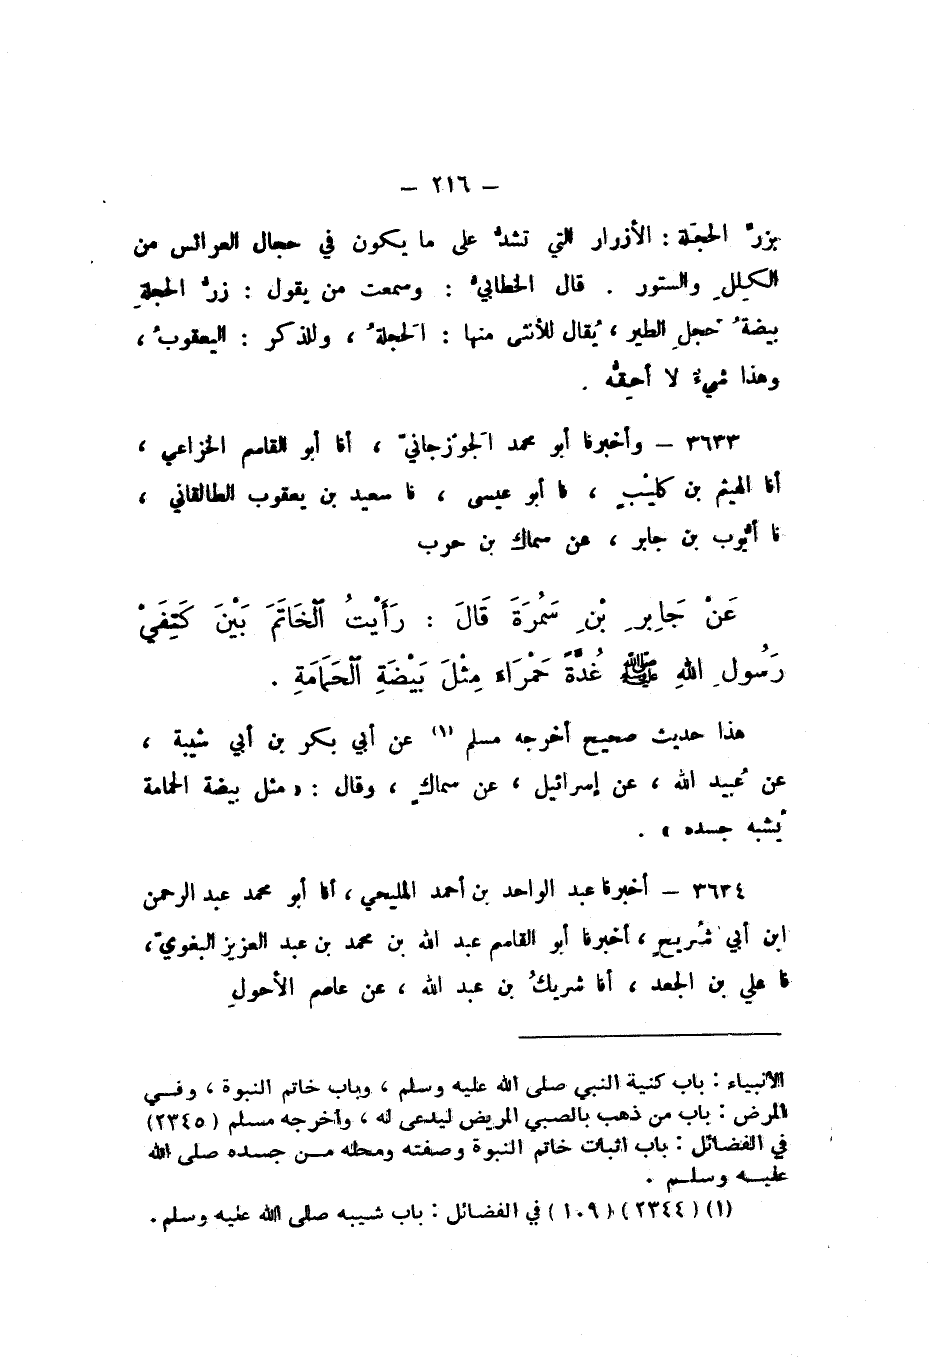 – ٢١٦ –
بزرّ الحجَلة : الأزرار التي تشدُّ على ما يكون في حجال العرائس من
الكِلل والستور . قال الخطابيُّ : وسمعت من يقول : زرُّ الحجلةِ
بيضةُ حَجلِ الطير ، يُقال للأنثى منها : الحَجلةُ ، وللذكر : اليعقوبُ ،
وهذا شيءٌ لا أحِقُّه .
٣٦٣٣ – وأخبرنا أبو محمد الجَوْزجانيّ ، أنا أبو القاسم الخزاعي ،
أنا الهيثم بن كليْبٍ ، نا أبو عيسى ، نا سعيد بن يعقوب الطالقاني ،
نا أيُّوب بن جابر ، عن سماك بن حرب
عَنْ جَابِرِ بْنِ سَمُرَةَ قَالَ : رَأَيْتُ الْخَاتَمَ بَيْنَ كَتِفَيْ
رَسُولِ اللهِ ﷺ غُدَّةً حَمْرَاءَ مِثْلَ بَيْضَةِ الْحَمَامَةِ .
هذا حديث صحيح أخرجه مسلم (١) عن أبي بكر بن أبي شيبة ،
عن عُبيد الله ، عن إسرائيل ، عن سماكٍ ، وقال : « مثل بيضة الحمامة
يُشبه جسده » .
٣٦٣٤ – أخبرنا عبد الواحد بن أحمد المليحي ، أنا أبو محمد عبد الرحمن
ابن أبي شُريحٍ ، أخبرنا أبو القاسم عبد الله بن محمد بن عبد العزيز البغويّ ،
نا علي بن الجعد ، أنا شريكُ بن عبد الله ، عن عاصم الأحولِ
الأنبياء : باب كنية النبي صلى الله عليه وسلم ، وباب خاتم النبوة ، وفي
المرض : باب من ذهب بالصبي المريض ليدعى له ، وأخرجه مسلم (٢٣٤٥)
في الفضائل : باب اثبات خاتم النبوة وصفته ومحله من جسده صلى الله
عليه وسلم .
(١) (٢٣٤٤) (١٠٩) في الفضائل : باب شيبه صلى الله عليه وسلم .